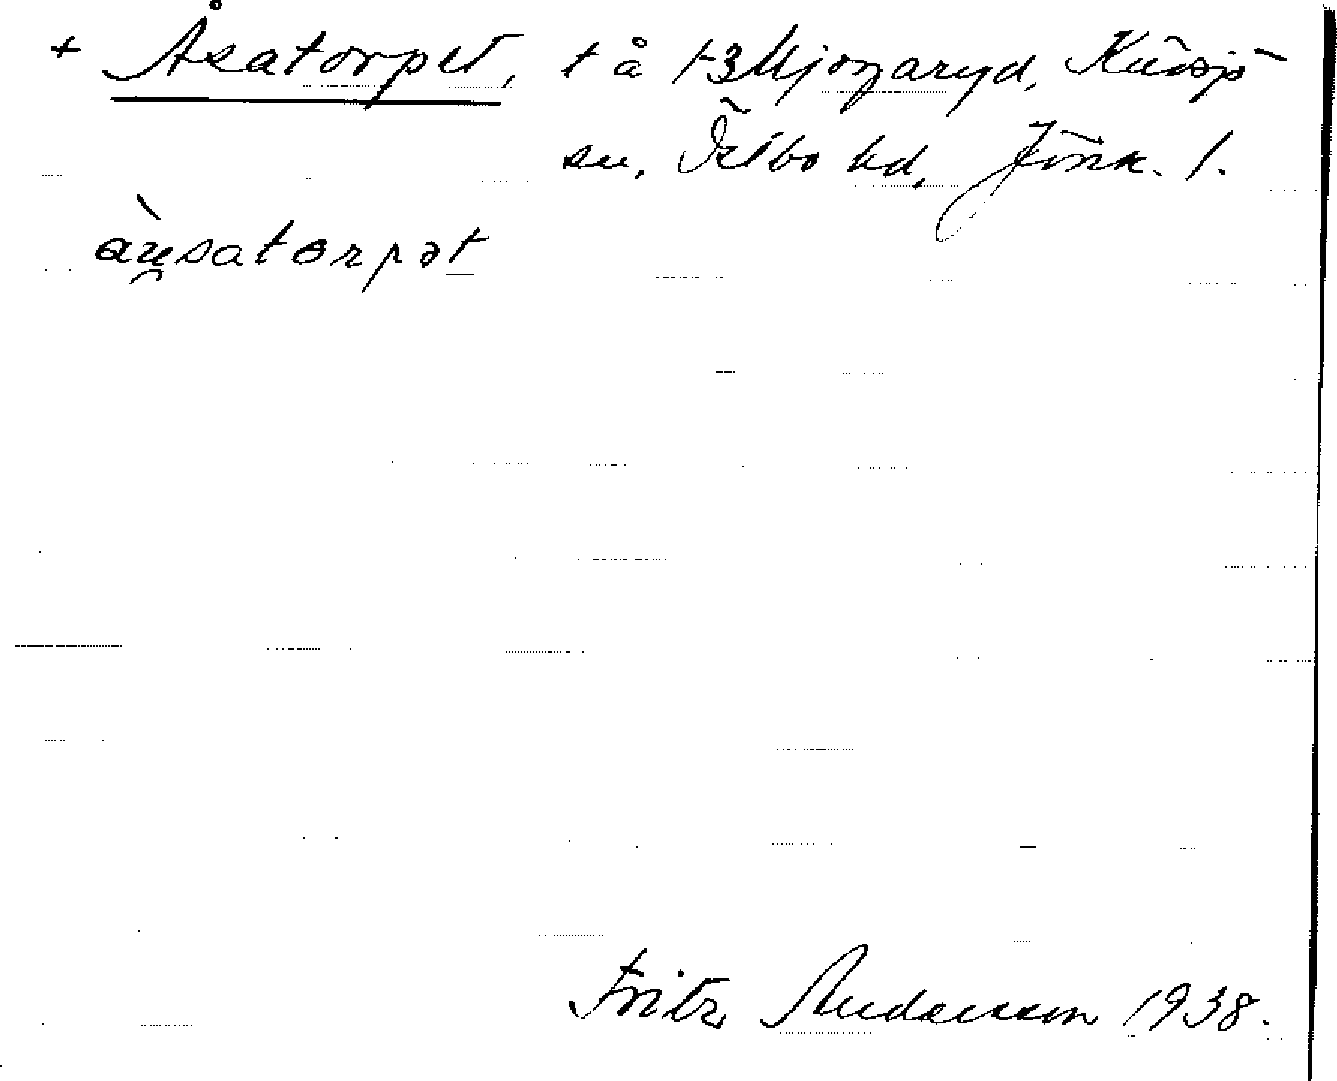 + Åsatorpet, t å 1-3 Mjogaryd, Kävsjö
sn, Östbo hd, Jönk. l.
àu̯satorpət
Fritz Andersson 1938.